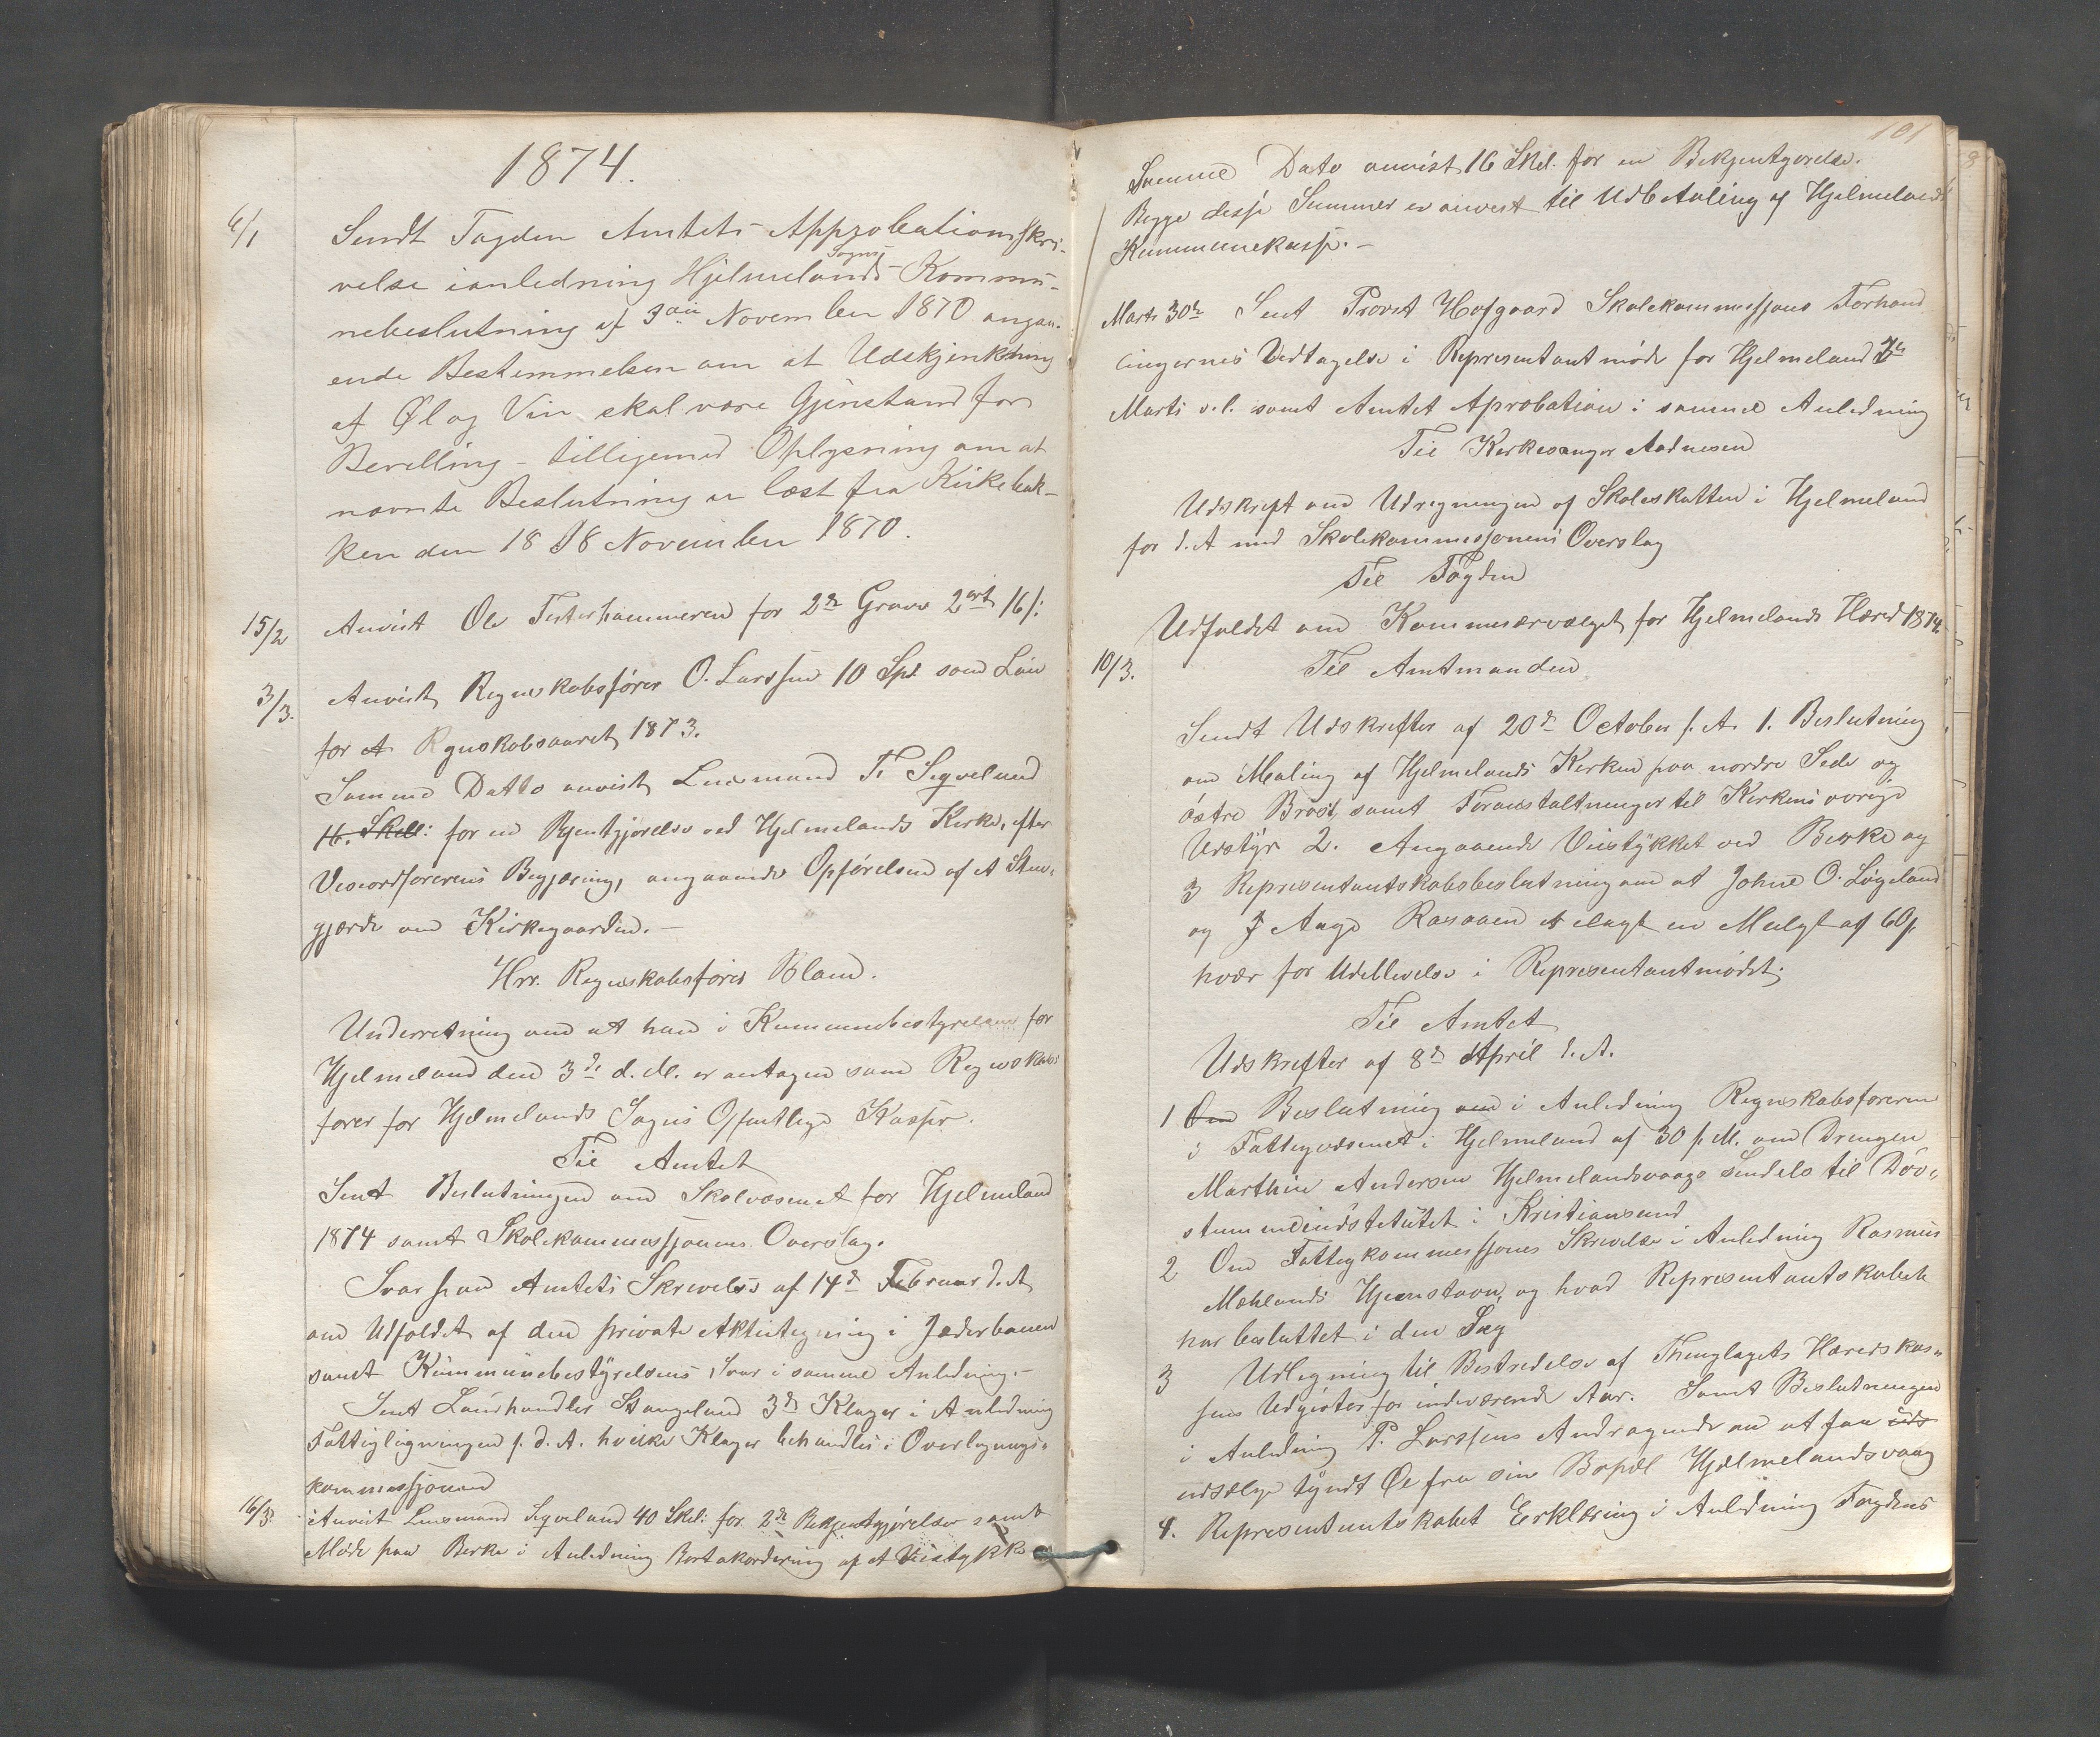 1874.
6/1 Sendt Fogden Amtets Approbationsskri-
velse ianledning Hjelmelands Sogns Kommu-
nebeslutning af 3die November 1870 angaa-
ende Bestemmelsen om at Udskjenkning
af Øl og Vin skal være Gjenstand for
Bevilling - tilligemed Oplysning om at
nævnte Beslutning er læst fra Kirkebak-
ken den 18 November 1870.
15/2 Anvist Ole for 2de Grave 2ort 16/:
3/3. Anvist Regnskabsfører O. Larssen 10 Spd som Løn
for A Rgnskabsaaret 1873.
Samme Datto anvist Lensmand Sigvelund
16. Skill: for en Kjentgjørelse ved Hjelmelands Kirke, efter
Viseordførerens Begjæring, angaaende Opførelsen af et Sten-
gjærde om Kirkegaarden. -
Hrr. Regnskabsfører Øland.
Underretning om at han i Kummunebestyrelsen for
Hjelmeland den 3de d. M. er antagen som Regnskabs
fører for Hjelmelands Sogns Offentlige Kasser.
Til Amtet
Sent Beslutningen om Skolvæsenet for Hjelmeland
1874 samt Skolekommissjonens Overslag.
Svar paa Amtets Skrivelse af 14d Februar d. A
om Udfaldet af den private Aktietegning i Jæderbanen
samt Kummunebestyrelsens Svar i samme Anledning. -
Sent Landhandler Stangeland 3de Klager i Anledning
Fattigligningen f. d. A. hvilke Klager behandles i Overlignings-
kommissjonen
16/3. Anvist Lensmand Sigveland 40 Skil: for 2de Bekjentgjørelser samt
Møde paa Berke i Anledning Bortakordering af et Veistykke
101
Samme Dato anvist 16 Skil. for en Bekjentgjørelse.
Begge disse Summer er anvist til Udbetaling af Hjelmelands
Kummunekasse. -
Marts 30te Sent Provst Hofgaard Skolekommissjons Forhand
lingernes Vedtagelse i Representantmøde for Hjelmeland
Marti s. l. samt Amtet Aprobation i samme Anledning
Til Kirkesanger Aadnesen
Udskrift om Udregningen af Skoleskatten i Hjelmeland
for d. A med Skolekommissjonens Overslag
Til Fogden
Udfaldet om Kommisærvalget for Hjelmelands Hæred 1874.
10/3. Til Amtmanden
Sendt Udskrifter af 20de October f. A. 1. Beslutning
om Maling af Hjelmelands Kirken paa nordre Side og
østre Brøst, samt Foranstaltninger til Kirkens øvrige
Udstyr 2. Angaaende Veistykket ved Berke og
3 Representantskabsbeslutning om at Johne O. Løgeland
og J Aage Rasaaen er ilagt en Mulgt af 60ß
hvær for Udeblivelse i Representantmødet;
Til Amtet
Udskrifter af 8de April d. A.
1 Om Beslutning om i Anledning Regnskabsføreren
i Fattigvæsenet i Hjelmeland af 30 f. M. om Drengen
Marthin Andersen Hjelmelandsvaage Sendels til Døv-
stummeindstetutet i Kristiansund
2 Om Fattigkommissjones Skrivelse i Anledning Rasmus
Mæhlands Hjemstavn, og hvad Representantskabet
har besluttet i den Sag
3 Udlegning til Bestridelse af Thinglagets Hæredskas-
sens Udgivter for indeværende Aar. Samt Beslutningen
i Anledning P. Larssens Andragende om at faa uds
udsælge tyndt Øl fra sin Bopæl Hjælmelandsvaag
4. Representantskabet Eerklæring i Anledning Fogdens